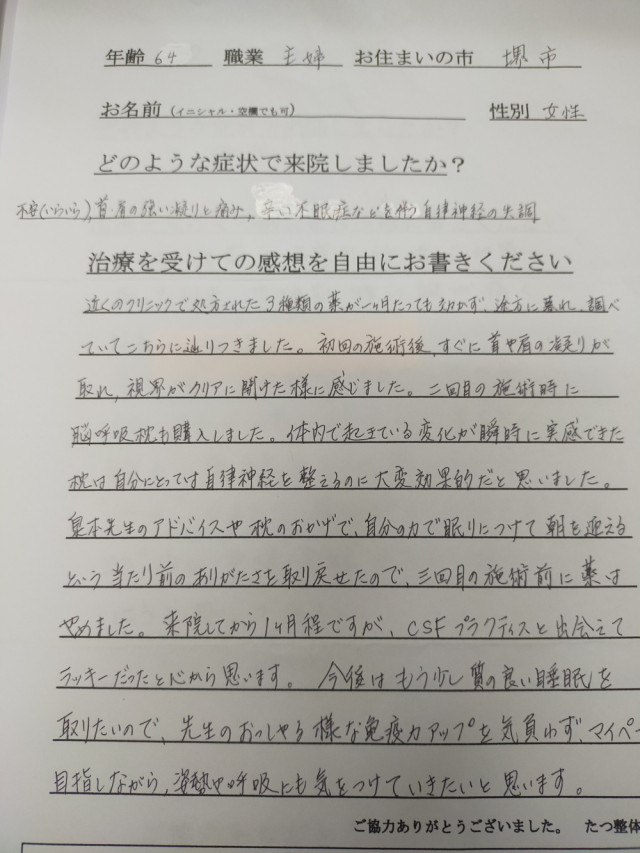 年齢 64 職業 主婦 お住まいの市 堺市
お名前（イニシャル・空欄でも可） 性別 女性
どのような症状で来院しましたか？
不安（いらいら）、首・肩の強い凝りと痛み、辛い不眠症などを伴う自律神経の失調
治療を受けての感想を自由にお書きください
近くのクリニックで処方された3種類の薬が一ヶ月たっても効かず、途方に暮れ、調べ
ていてこちらに辿りつきました。初回の施術後、すぐに首や肩の凝りが
取れ、視界がクリアに開けた様に感じました。二回目の施術時に
脳呼吸枕も購入しました。体内で起きている変化が瞬時に実感できた
枕は自分にとっては自律神経を整えるのに大変効果的だと思いました。
先生のアドバイスや枕のおかげで、自分の力で眠りにつけて朝を迎える
という当たり前のありがたさを取り戻せたので、三回目の施術前に薬は
やめました。来院してから1ヶ月程ですが、CSFプラクティスと出会えて
ラッキーだったと心から思います。今後はもう少し質の良い睡眠を
取りたいので、先生のおっしゃる様な免疫力アップを気負わず、マイペー
目指しながら、姿勢や呼吸にも気をつけていきたいと思います。
ご協力ありがとうございました。 たつ整体